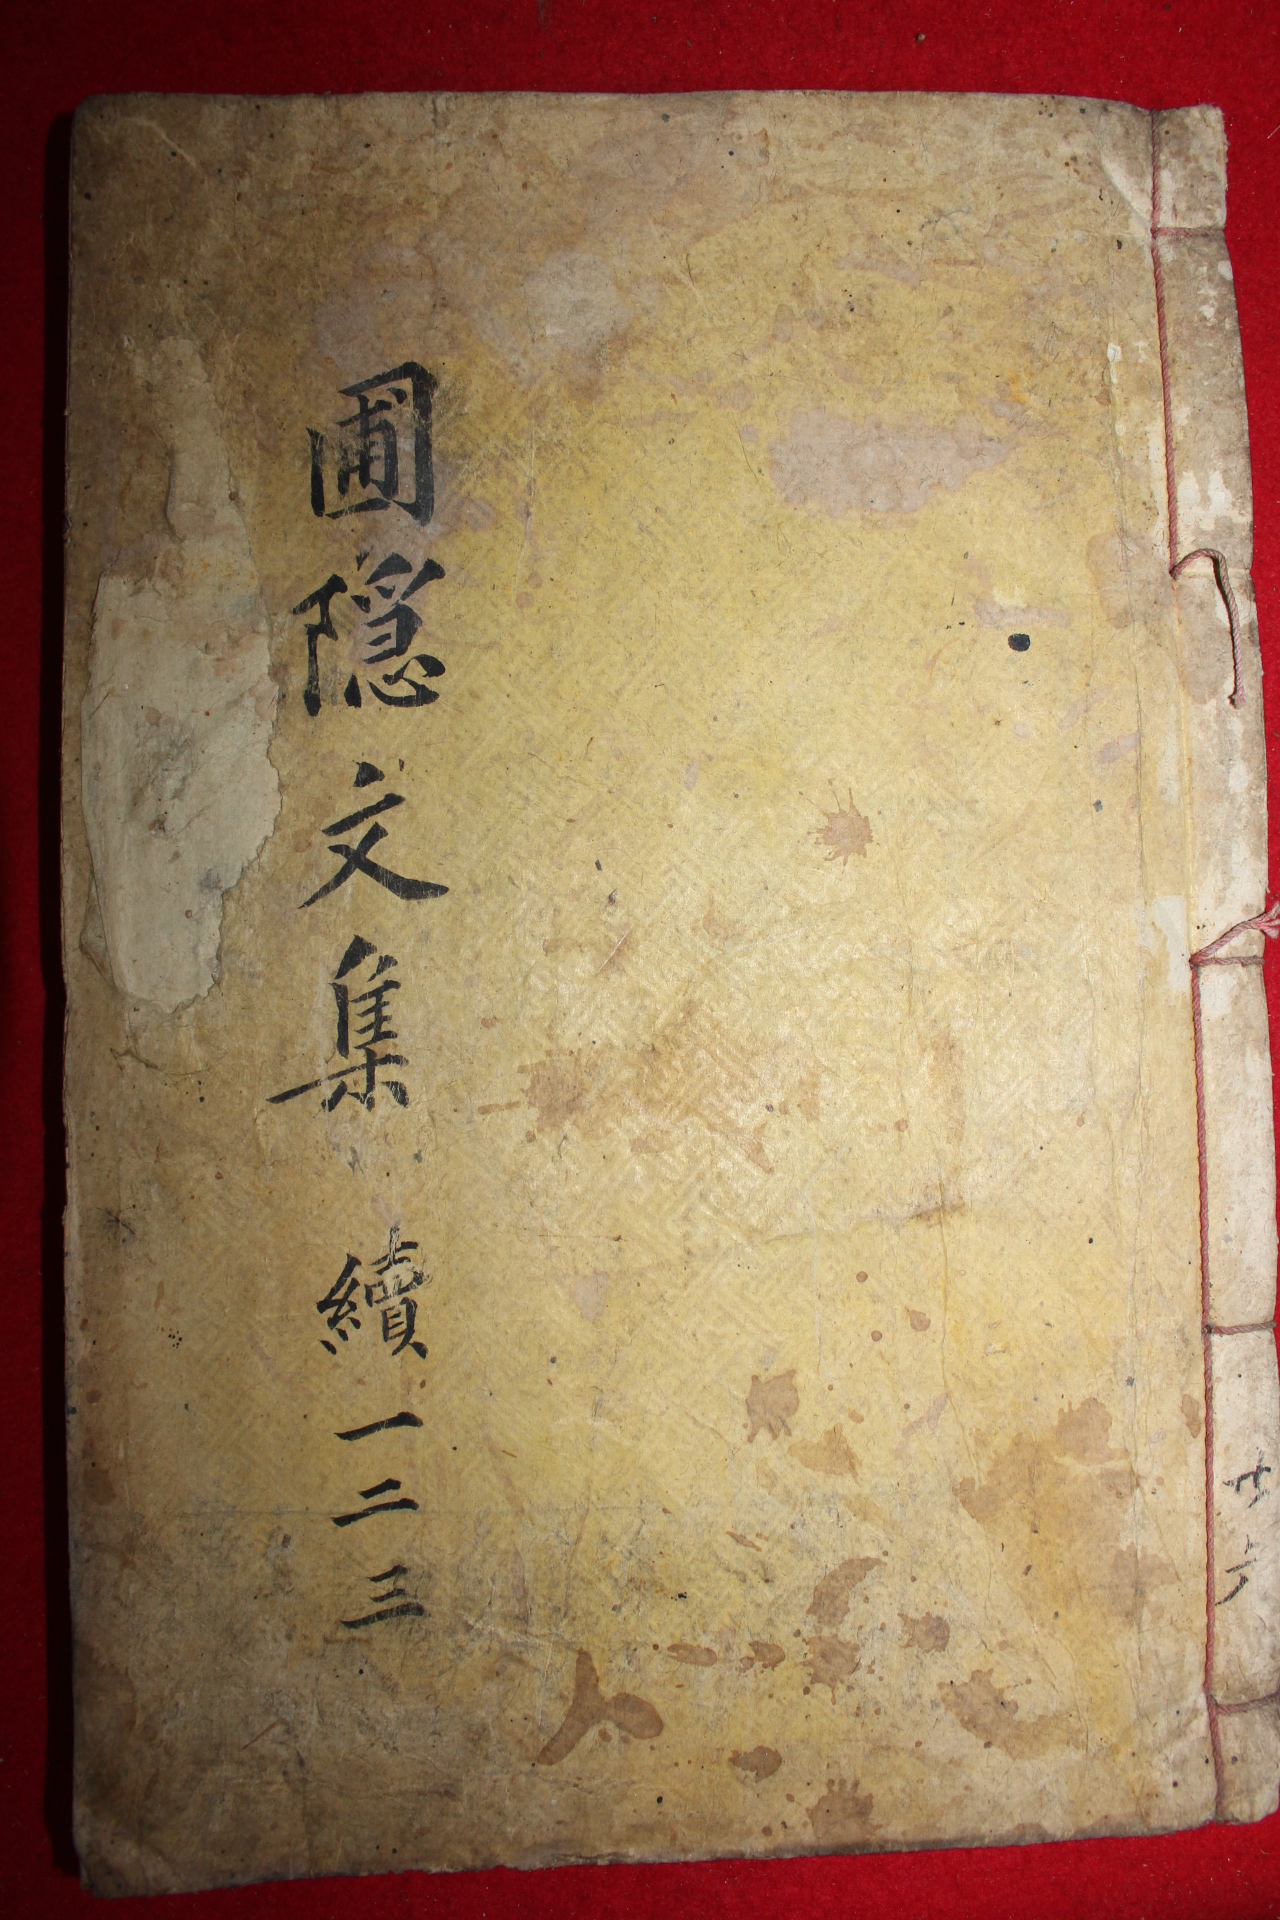 圃隱文集 續 一 二 三